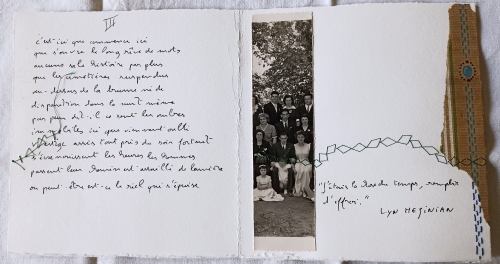 III
c'est ici que commence ici
que s'ouvre le long rêve de mots
aucune histoire pas plus
que les cimetières suspendus
au-dessus de la brume ni de
disparition dans la nuit même
pas peur dit-il ce sont les arbres
immobiles ici que vienne oubli
assis tout près du soir
s'évanouissent les heures les hommes
passent leur de lumière
ou peut-être est-ce le ciel qui s'épuise
du temps, remplie
d'effroi."
LYN HEJINIAN